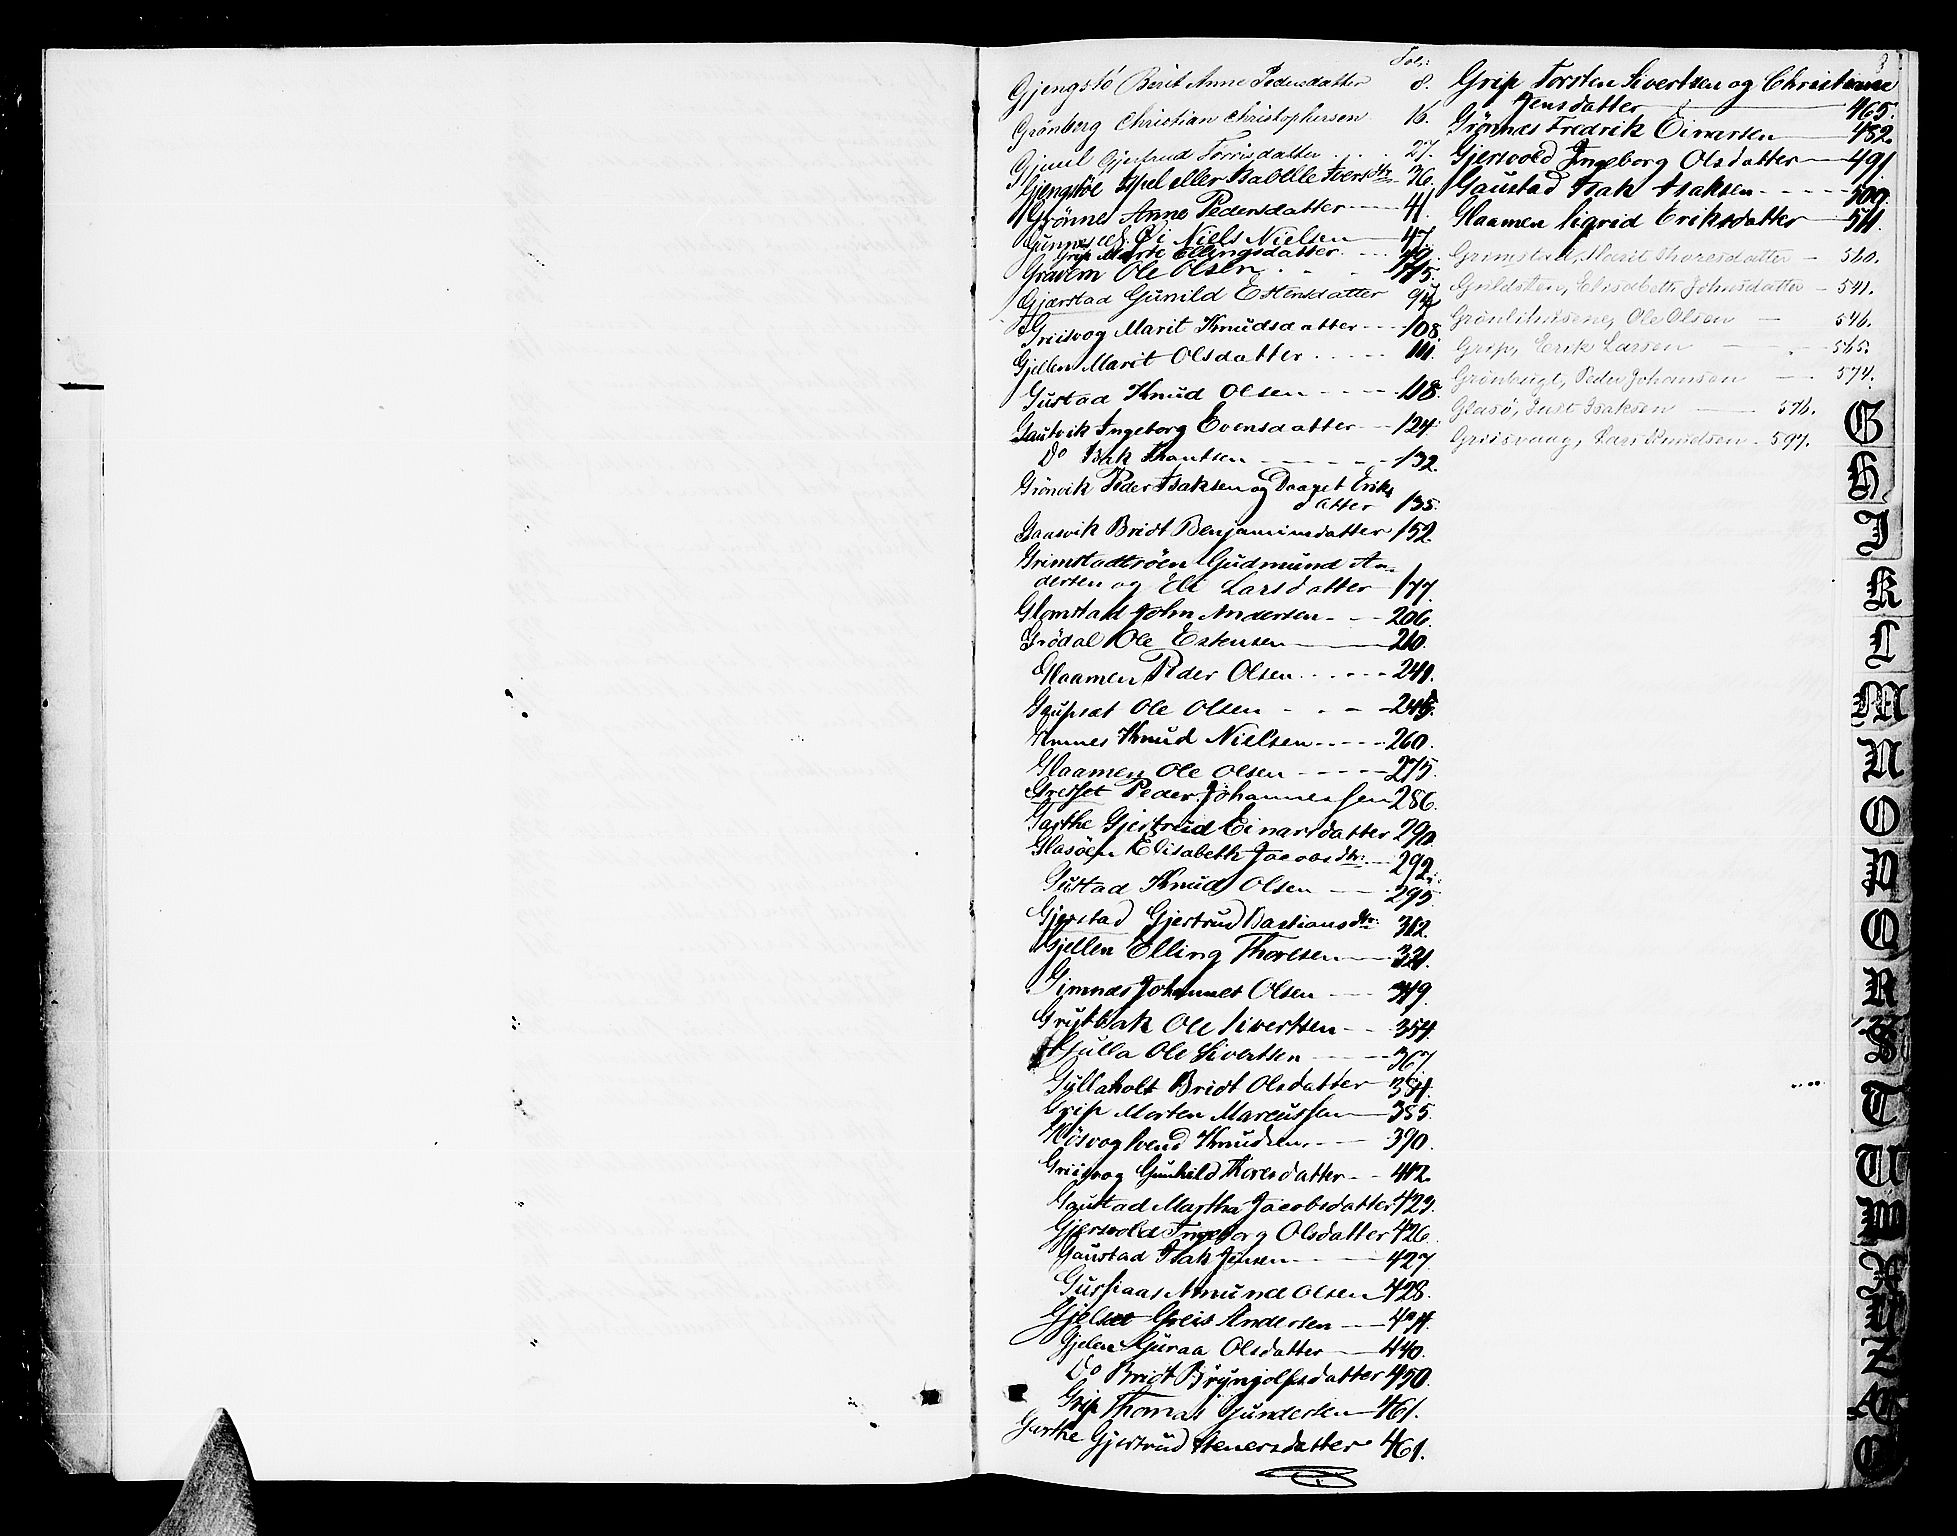 Fol:
Gjengstö Berit Anne Pedersdatter 8.
Grönberg Christian Christophersen 16.
Gjuul Gjertrud Torrisdatter 27.
Gjengstöe Ispel eller Isabelle Iversdtr 36.
Grönnes Anne Pedersdatter 41.
Gimnes Niels Nielsen 47.
Grip Marte Ellingsdatter
Gravem Ole Olsen
Gjærstad Gunild Estensdatter
Griisvog Marit Knudsdatter 108.
Gjellen Marit Olsdatter 111.
Gustad Knud Olsen 118.
Gautvik Ingeborg Evensdatter 124.
Do Isak Knutsen 132.
Grönvik Peder Isaksen og Daaget Eriks
datter 135.
Gaasvik Bridt Benjaminsdatter 152.
Grimstadtröen Gudmund An-
dersen og Eli Larsdatter 177.
Glomstad John Andersen 206.
Grödal Ole Estensen 210.
Glaamen Peder Olsen 241.
Gaupsat Ole Olsen
Gimnes Knud Nielsen 260.
Glaamen Ole Olsen 275.
Gresset Peder Johannessen 286.
Garthe Gjertrud Einarsdatter 290.
Glasöen Elisabeth Jacobsdtr: 292.
Gustad Knud Olsen 295.
Gjerstad Gjertrud Bastiansdtr: 312.
Gjellen Elling Thoresen 321.
Gimnæs Johannes Olsen 349.
Grytbak Ole Sivertsen 354.
Gulla Ole Sivertsen 367.
Gyllaholt Bridt Olsdatter 384.
Grip Morten Marcussen 385.
Svend Knudsen 390.
Griisvog Gunhild Thoresdatter 412.
Gaustad Martha Jacobsdatter 423.
Gjersvold Ingeborg Olsdatter 426.
Gaustad Isak Jensen 427.
Gussiaas Amund Olsen 428.
Gjelset Greis Andersen 434.
Gjelen Guraa Olsdatter 440.
Do Bridt Bryngolfsdatter 450.
Grip Thomas Gundersen 461.
Garthe Gjertrud Stenersdatter 461.
Grip Torsten Sivertsen og Christianne
Jensdatter 465.
Grönnes Fredrik Einersen 482.
Gjersvold Ingeborg Olsdatter 491.
Gaustad Isak Isaksen 509.
Glaamen Sigrid Eriksdatter 511.
Grimstad, Marit Thoresdatter 560.
Guldsten, Elisabeth Johnsdatter 541.
Ole Olsen 546.
Grip, Erik Larsen 565.
Grönbugt, Peder Johansen 574.
Glasö, Just Isaksen 576.
Griisvaag, Lars Knudsen 597.
G
H
I
K
L
M
N
O
P
Q
R
S
T
U
Z
Æ
Ö